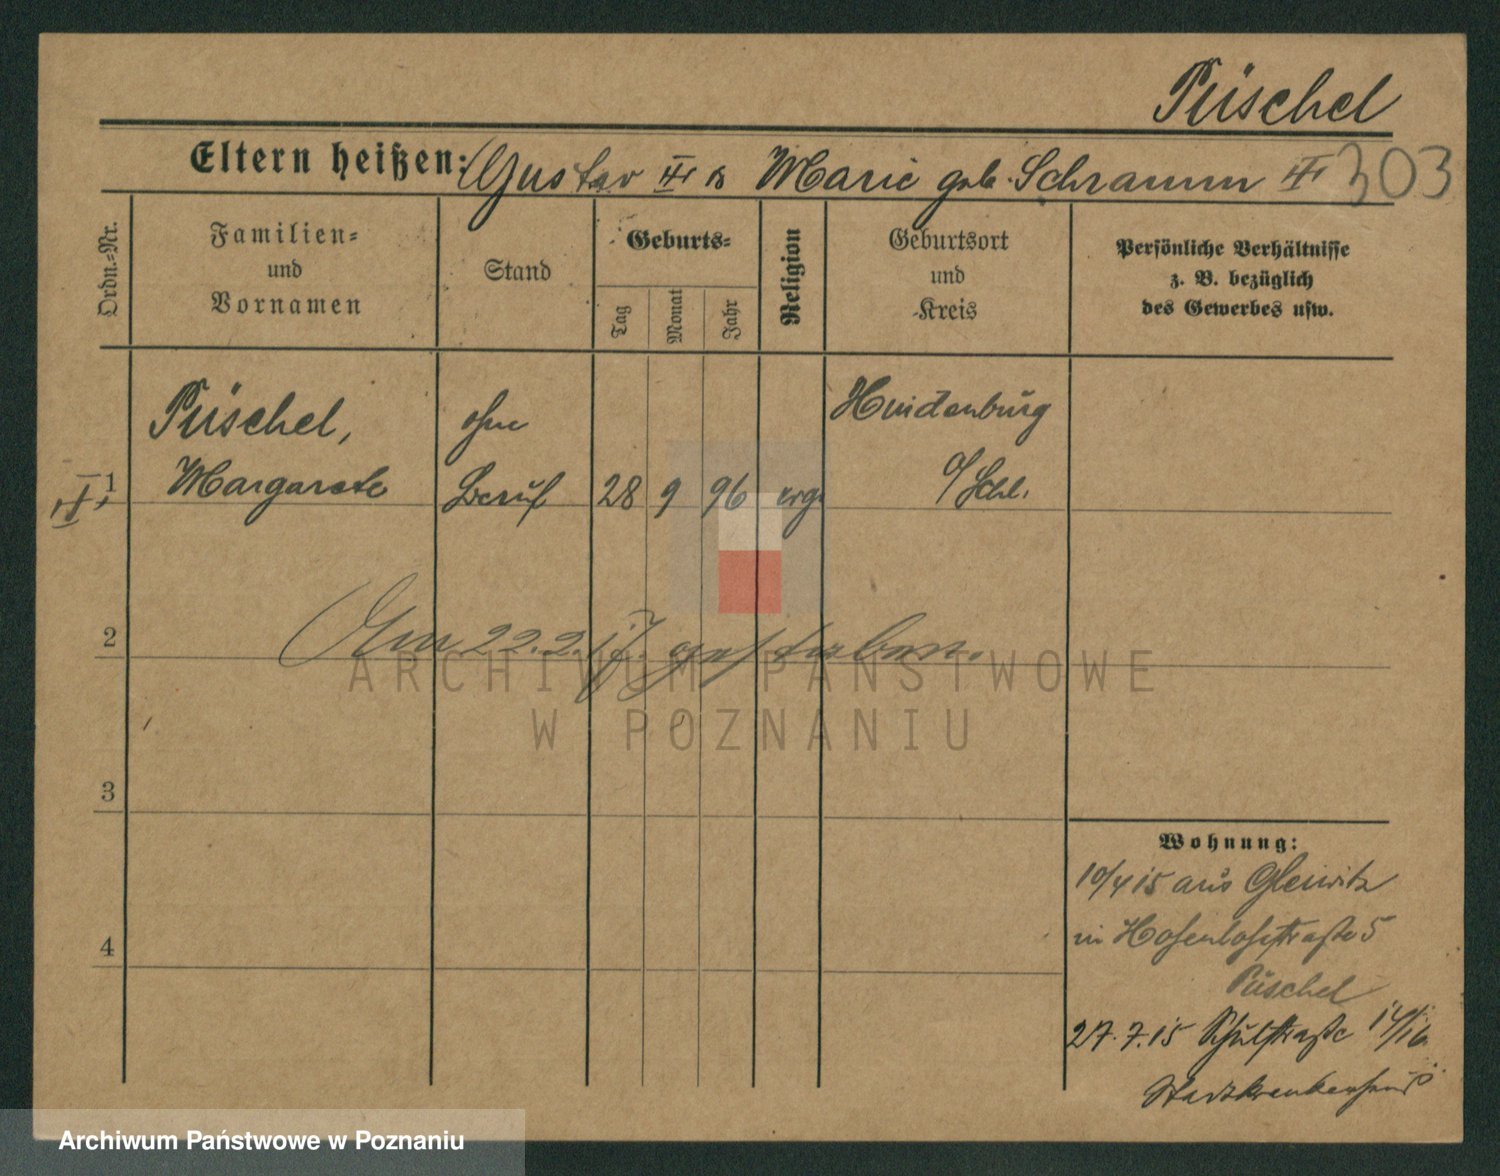 Püschel
Eltern heißen: Gustav & Marie geb. Schramm 303
Ordn.-Nr.
Familien-
und
Vornamen
Stand
Geburts-
Tag
Monat
Jahr
Religion
Geburtsort
und
Kreis
Persönliche Verhältnisse
z. B. bezüglich
des Gewerbes usw.
Püschel, ohne
1 Margarete Beruf 28 9 96 evg.
Hindenburg
O/Schl.
2
Am 22.2.17. gestorben.
ARCHIWUM PAŃSTWOWE
W POZNANIU
3
4
Wohnung:
10/4 15 aus Gleiwitz
in Hohenlohestraße 5
Püschel
27.7.15 Schulstraße 14/16
Stadtkrankenhaus
Archiwum Państwowe w Poznaniu